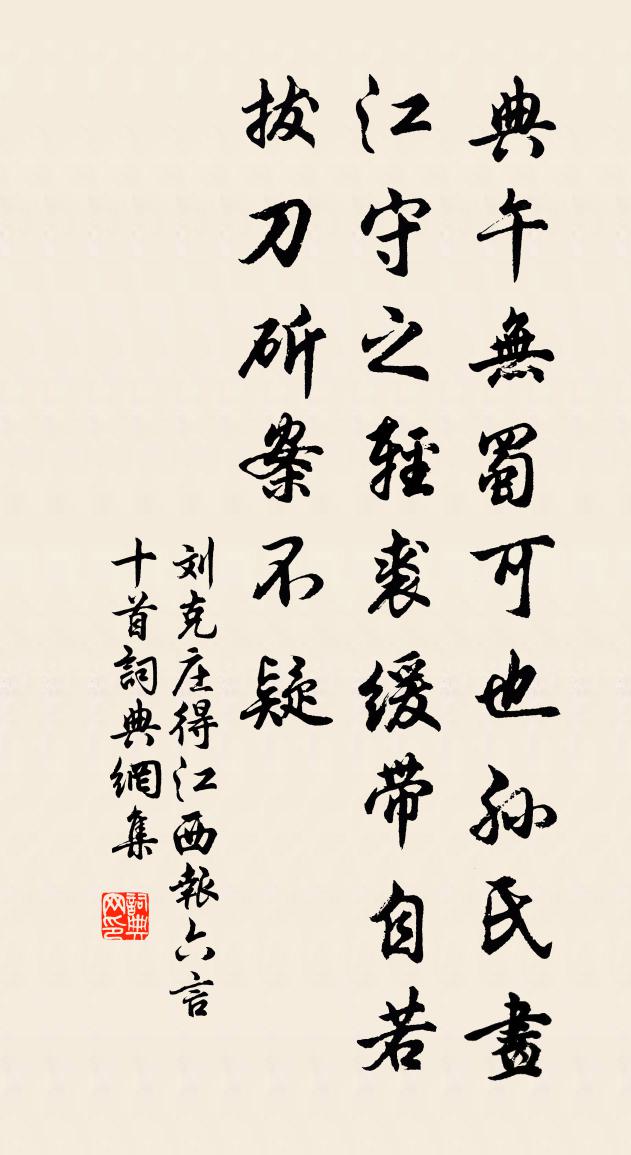 典午無蜀可也孫氏畫
江守之輕裘緩帶自若
拔刀斫案不疑
刘克庄得江西報六言
十首詞典網集
詞典
网印